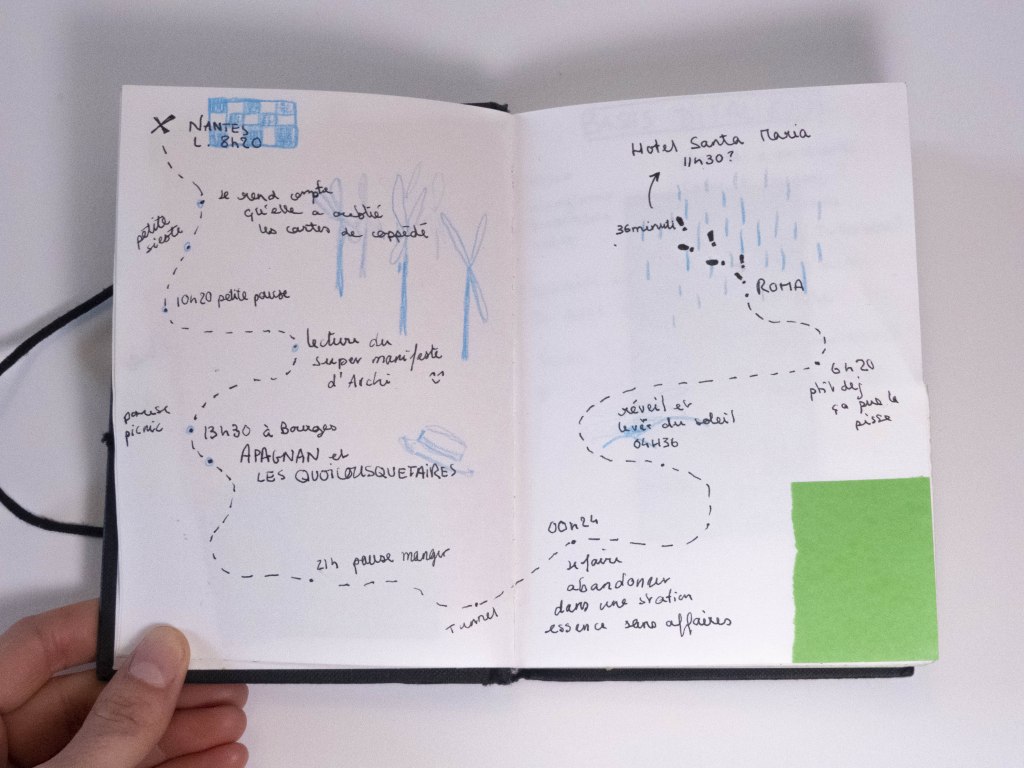 NANTES
L. 8h20
se rend compte
qu'elle a oublié
les cartes de coppédé
petite
sieste
10h20 petite pause
lecture du
super manifeste
d'Archi
pause
picnic
13h30 à Bourges
APAGNAN et
LES QUOICOUSQUETAIRES
21h pause manger
Tunnel
00h24
se faire
abandonner
dans une station
essence sans affaires
réveil et
lever du soleil
04H36
6h20
ptit dej
ça pue la
pisse
ROMA
36 minuti
Hotel Santa Maria
11h30?